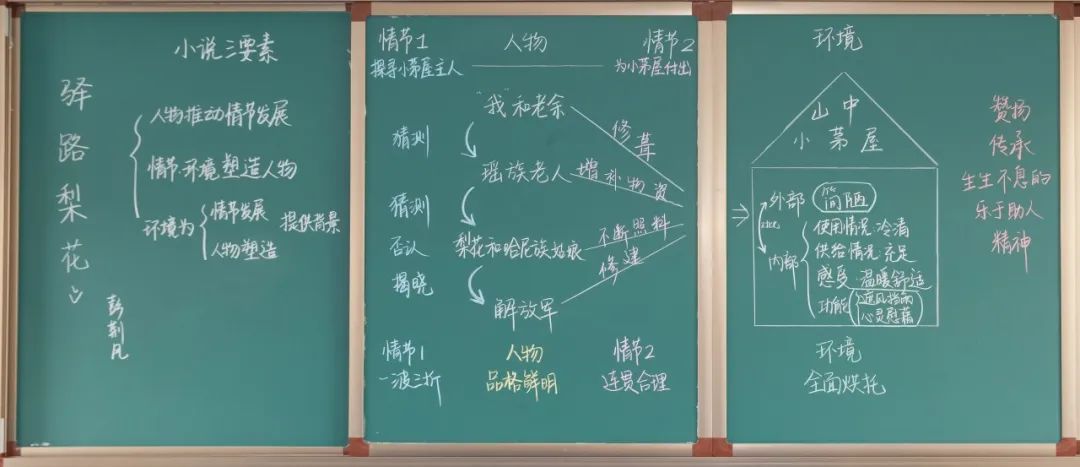 小说三要素
驿路梨花
人物推动情节发展
情节·环境塑造人物
环境为
情节发展
人物塑造
提供背景
彭荆凡
情节1 人物 情节2
探寻小茅屋主人 为小茅屋付出
"我"和老余
猜测
修葺
瑶族老人
增补物资
猜测
否认
梨花和哈尼族姑娘
不断照料
修建
揭晓
解放军
情节1 人物 情节2
一波三折 品格鲜明 连贯合理
环境
山中
小茅屋
外部 简陋
对比
内部
使用情况·冷清
供给情况·充足
感受 温暖舒适
功能
遮风挡雨
心灵慰藉
环境
全面烘托
赞扬
传承
生生不息的
乐于助人
精神